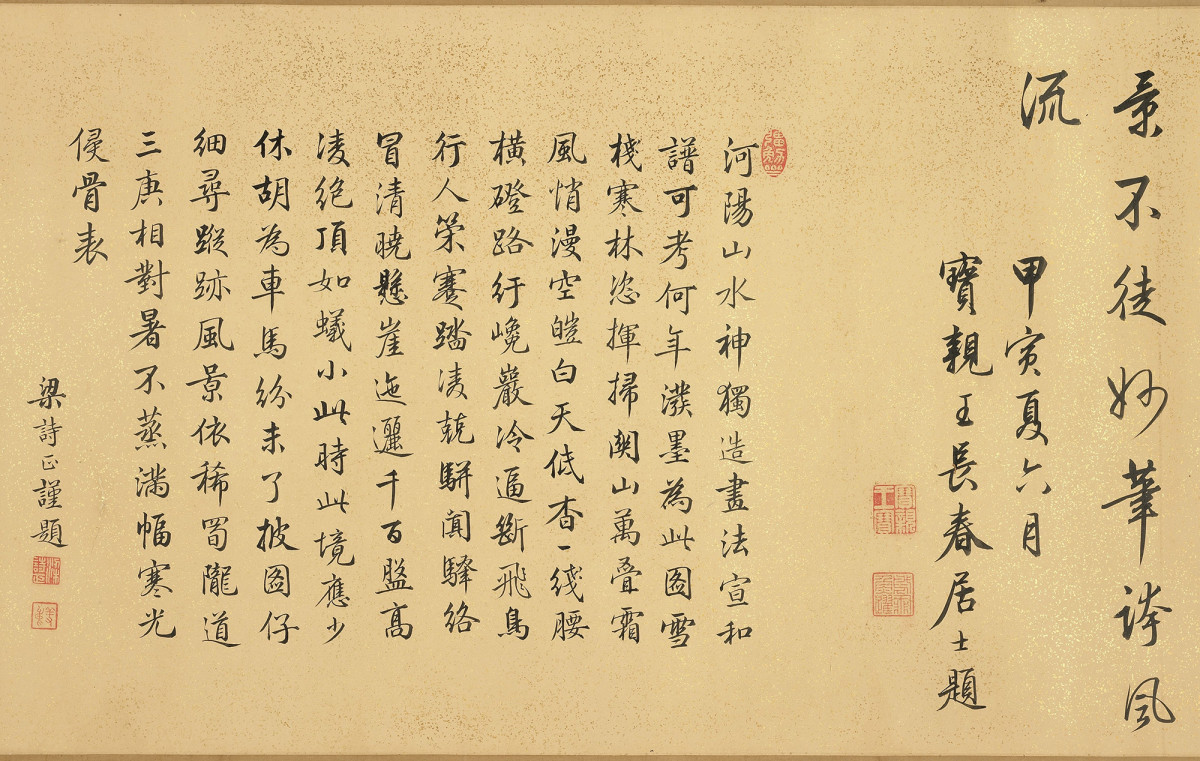 景不徒妙筆詩風
流
甲寅夏六月
寶親王長春居士題
河陽山水神獨造畫法宣和
譜可考何年潑墨為此圖雪
棧寒林恣揮掃關山萬疊霜
風悄漫空皚白天低杳一綫腰
橫磴路紆巉巖冷逼斷飛鳥
行人策蹇踏凌兢駢闐驛絡
冒清曉懸崖迤邐千百盤高
凌絶頂如蟻小此時此境應少
休胡為車馬紛未了披圖仔
細尋蹤跡風景依稀蜀隴道
三庚相對暑不蒸滿幅寒光
侵骨表
梁詩正謹題